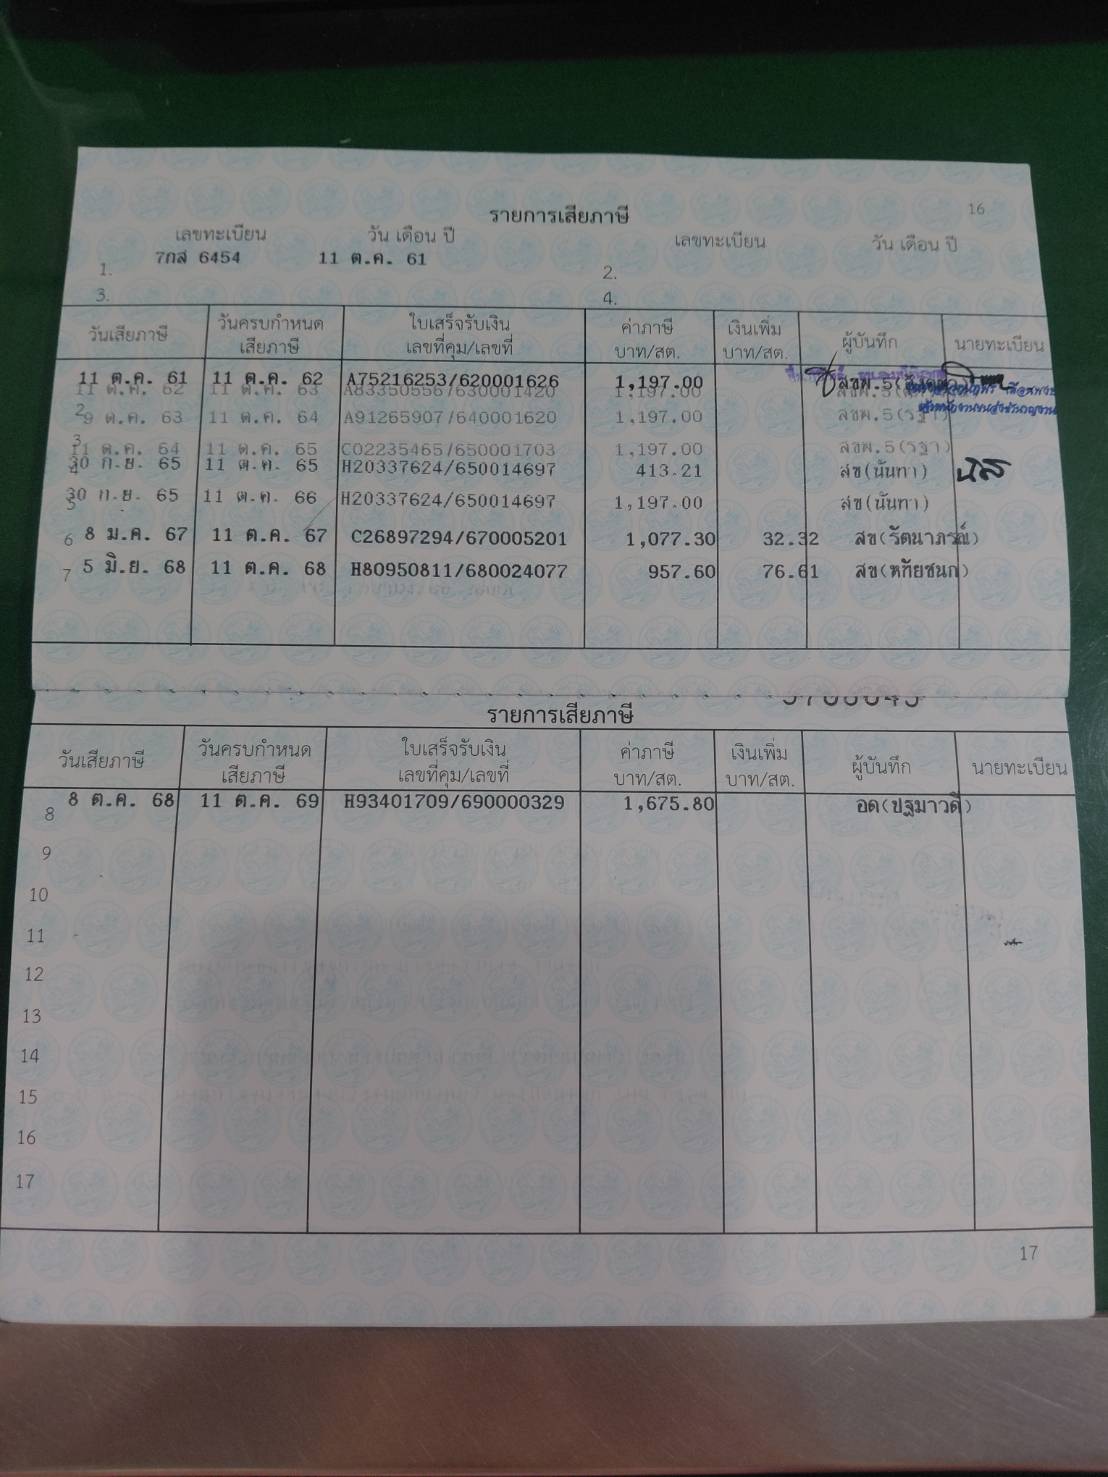 16
รายการเสียภาษี
เลขทะเบียน วัน เดือน ปี เลขทะเบียน วัน เดือน ปี
1. 7กส 6454 11 ต.ค. 61 2.
3. 4.
วันเสียภาษี วันครบกำหนดเสียภาษี ใบเสร็จรับเงิน เลขที่คุม/เลขที่ ค่าภาษี บาท/สต. เงินเพิ่ม บาท/สต. ผู้บันทึก นายทะเบียน
11 ต.ค. 61 11 ต.ค. 62 A75216253/620001626 1,197.00 สขผ.5
11 ต.ค. 62 11 ต.ค. 63 A83350556/630001420 1,197.00
2 9 ต.ค. 63 11 ต.ค. 64 A91265907/640001620 1,197.00 สขผ.5(รฐา)
3 11 ต.ค. 64 11 ต.ค. 65 C02235465/650001703 1,197.00 สขผ.5(รฐา)
4 30 ก.ย. 65 11 ต.ค. 65 H20337624/650014697 413.21 สข(นันทา)
5 30 ก.ย. 65 11 ต.ค. 66 H20337624/650014697 1,197.00 สข(นันทา)
6 8 ม.ค. 67 11 ต.ค. 67 C26897294/670005201 1,077.30 32.32 สข(รัตนาภรณ์)
7 5 มิ.ย. 68 11 ต.ค. 68 H80950811/680024077 957.60 76.61 สข(หทัยชนก)
รายการเสียภาษี
วันเสียภาษี วันครบกำหนดเสียภาษี ใบเสร็จรับเงิน เลขที่คุม/เลขที่ ค่าภาษี บาท/สต. เงินเพิ่ม บาท/สต. ผู้บันทึก นายทะเบียน
8 8 ต.ค. 68 11 ต.ค. 69 H93401709/690000329 1,675.80 อด(ปฐมาวดี)
9
10
11
12
13
14
15
16
17
17